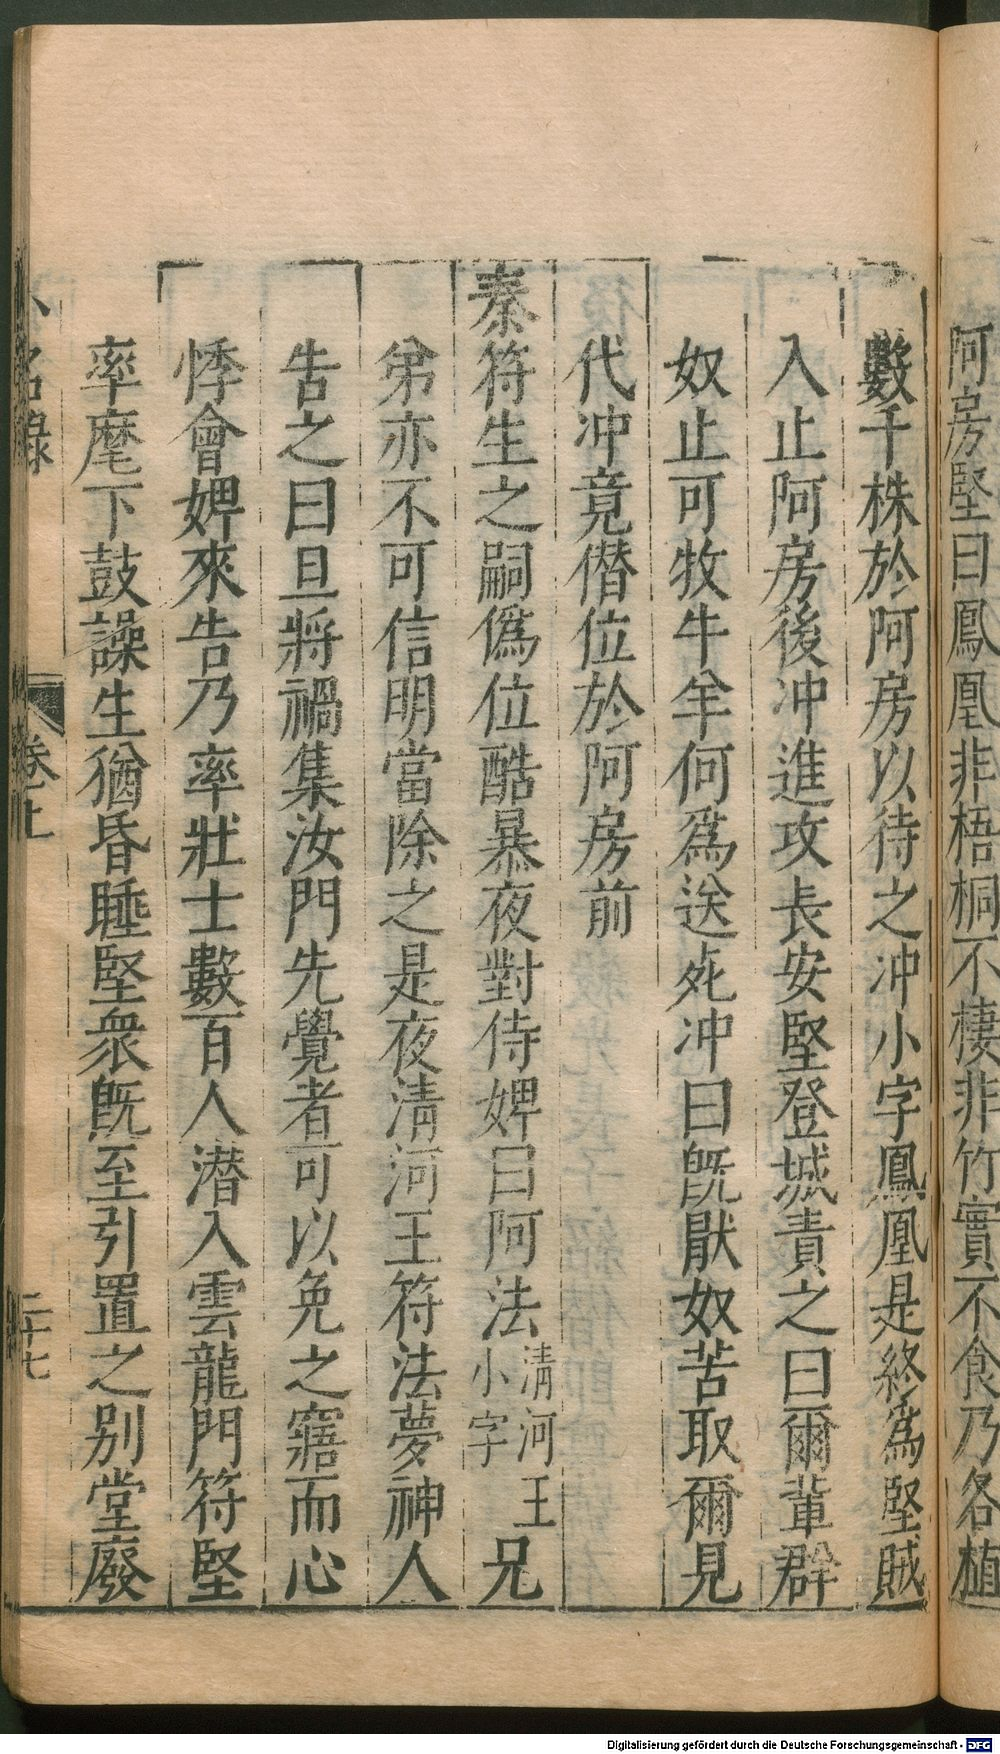 阿房堅曰鳳凰非梧桐不棲非竹實不食乃各植
數千株於阿房以待之冲小字鳳凰是終爲堅賊
入止阿房後冲進攻長安堅登城責之曰爾軰群
奴止可牧牛羊何爲送死冲曰旣厭奴苦取爾見
代冲竟僣位於阿房前
秦符生之嗣僞位酷暴夜對侍婢曰阿法清河王小字兄
弟亦不可信明當除之是夜清河王符法夢神人
告之曰旦將禍集汝門先覺者可以免之寤而心
悸會婢來告乃率壯士數百人潜入雲龍門符堅
率麾下鼓譟生猶昏睡堅衆旣至引置之別堂廢
小名錄 卷上 二十七
Digitalisierung gefördert durch die Deutsche Forschungsgemeinschaft - DFG